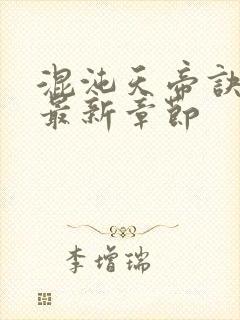 混沌天帝诀
最新章节
李增瑞